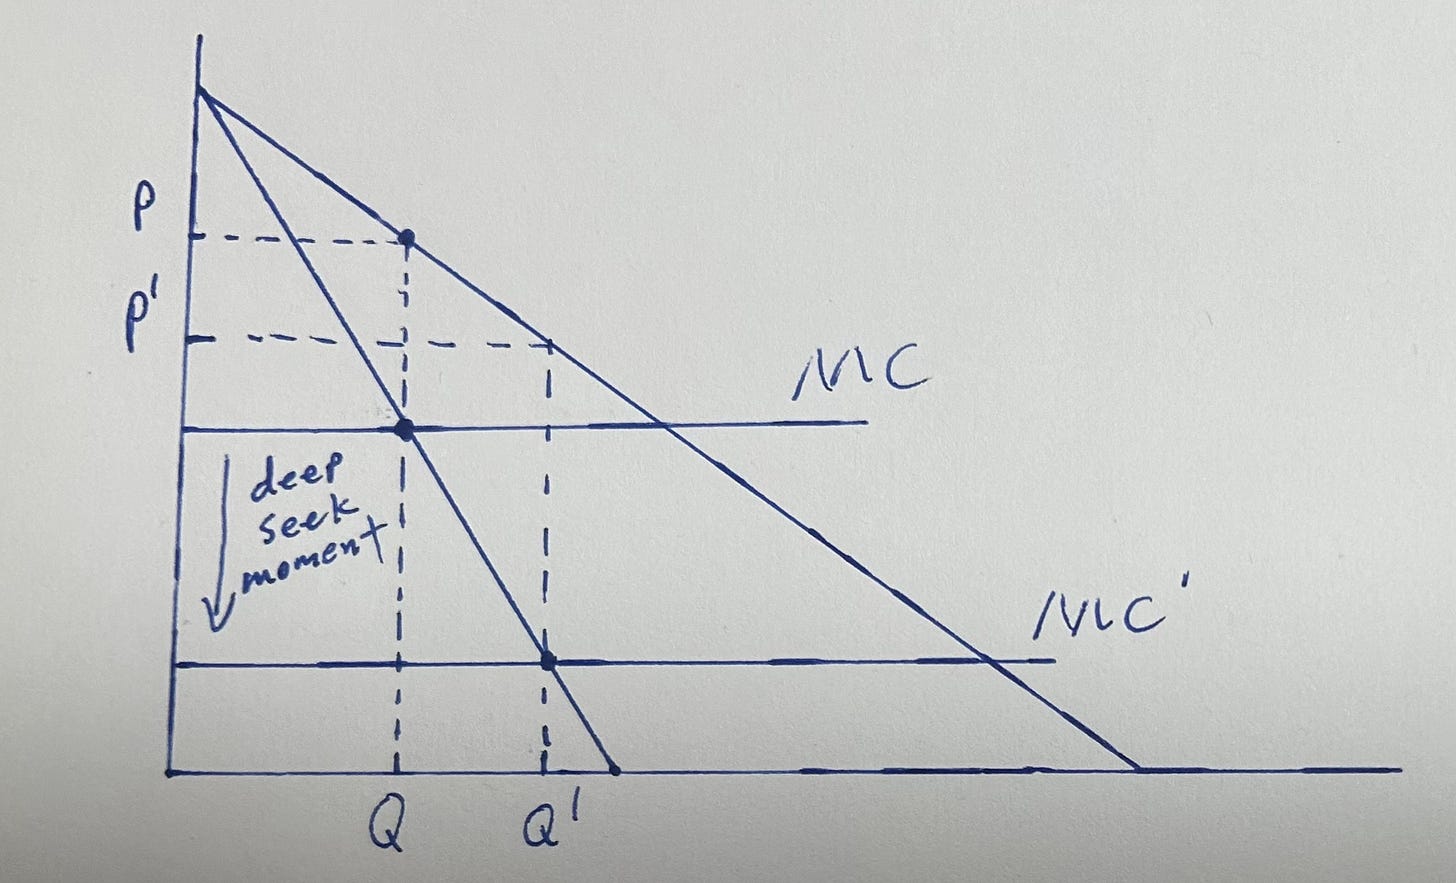 P
P'
MC
deep
seek
moment
MC'
Q
Q'